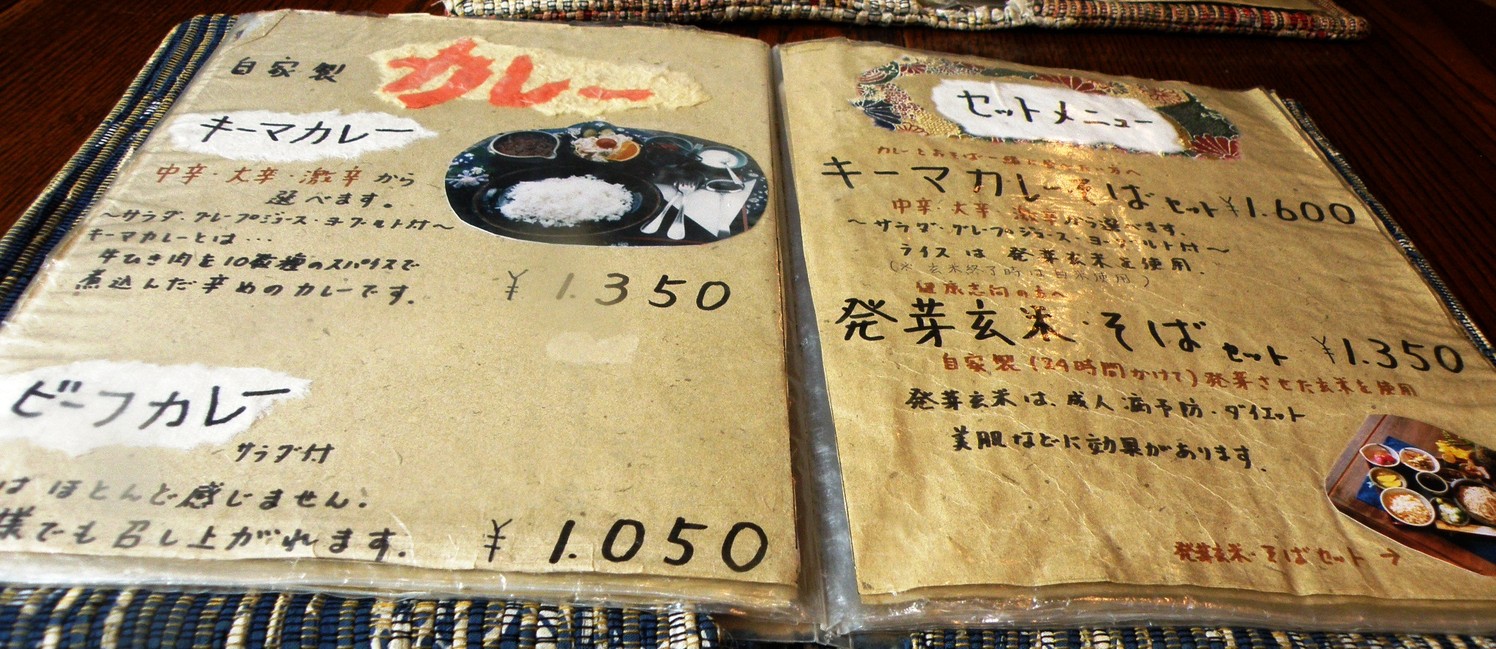 自家製 カレー
キーマカレー
中辛・大辛・激辛から
選べます。
〜サラダ・グレープジュース・ヨーグルト付〜
キーマカレーとは…
牛ひき肉を10数種のスパイスで
煮込んだ辛めのカレーです。
¥1.350
ビーフカレー
サラダ付
は ほとんど感じません。
様でも召し上がれます。
¥1.050
セットメニュー
カレーとおそば一緒に
キーマカレーそばセット ¥1.600
中辛・大辛・激辛から選べます。
〜サラダ・グレープジュース・ヨーグルト付〜
ライスは 発芽玄米を使用.
(※玄米終了時は白米使用)
健康志向の方へ
発芽玄米・そばセット ¥1.350
自家製(24時間かけて)発芽させた玄米を使用
発芽玄米は、成人病予防・ダイエット
美肌などに効果があります.
発芽玄米・そばセット→